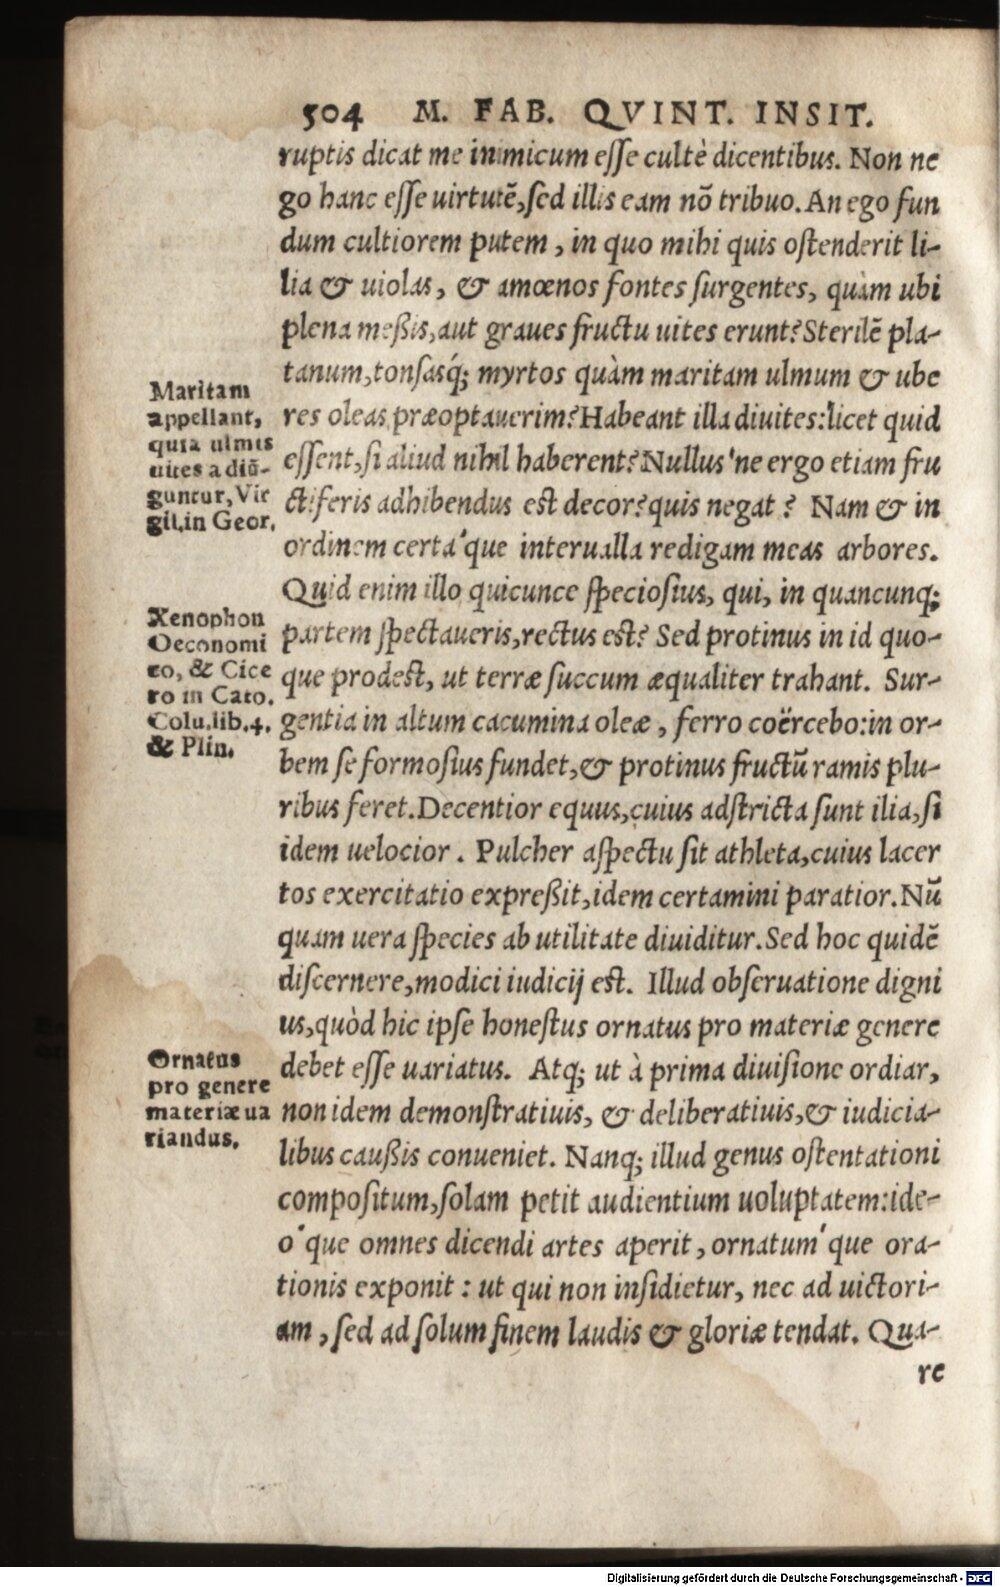 504 M. FAB. QVINT. INSIT.
ruptis dicat me inimicum eſſe cultè dicentibus. Non ne
go hanc eſſe uirtutẽ,ſed illis eam nõ tribuo. An ego fun
dum cultiorem putem, in quo mihi quis oſtenderit li-
lia & uiolas, & amœnos fontes ſurgentes, quàm ubi
plena meßis,aut graues fructu uites erunt? Sterilẽ pla-
tanum,tonſasq́; myrtos quàm maritam ulmum & ube
res oleas præoptauerim? Habeant illa diuites: licet quid
eſſent,ſi aliud nihil haberent? Nullus'ne ergo etiam fru
ctiferis adhibendus est decor? quis negat? Nam & in
ordinem certa'que interualla redigam meas arbores.
Quid enim illo quicunce ſpecioſius, qui, in quancunq;
partem ſpectaueris,rectus est? Sed protinus in id quo-
que prodest, ut terræ ſuccum æqualiter trahant. Sur-
gentia in altum cacumina oleæ, ferro coërcebo: in or-
bem ſe formoſius fundet,& protinus fructũ ramis plu-
ribus feret. Decentior equus,cuius adſtricta ſunt ilia,ſi
idem uelocior. Pulcher aſpectu ſit athleta,cuius lacer
tos exercitatio expreßit,idem certamini paratior. Nũ
quam uera ſpecies ab utilitate diuiditur. Sed hoc quidẽ
diſcernere,modici iudicij est. Illud obſeruatione digni
us,quòd hic ipſe honeſtus ornatus pro materiæ genere
debet eſſe uariatus. Atq; ut à prima diuiſione ordiar,
non idem demonſtratiuis, & deliberatiuis,& iudicia-
libus caußis conueniet. Nanq; illud genus oſtentationi
compoſitum,ſolam petit audientium uoluptatem: ide-
o'que omnes dicendi artes aperit, ornatum'que ora-
tionis exponit: ut qui non inſidietur, nec ad uictori-
am, ſed ad ſolum finem laudis & gloriæ tendat. Qua-
re
Maritam
appellant,
quia ulmis
uites adiũ-
guntur, Vir
gil.in Geor.
Xenophon
Oeconomi
co, & Cice
ro in Cato.
Colu.lib.4.
& Plin.
Ornatus
pro genere
materiæ ua
riandus.
Digitalisierung gefördert durch die Deutsche Forschungsgemeinschaft - DFG